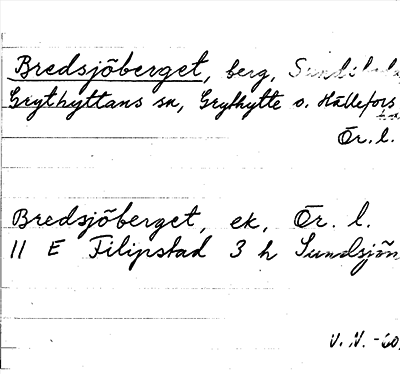 Bredsjöberget, berg,
Grythyttans sn, Grythytte o. Hällefors
Ör. l.
Bredsjöberget, ek, Ör. l.
11 E Filipstad 3 h Sundsjön
V. N. -60